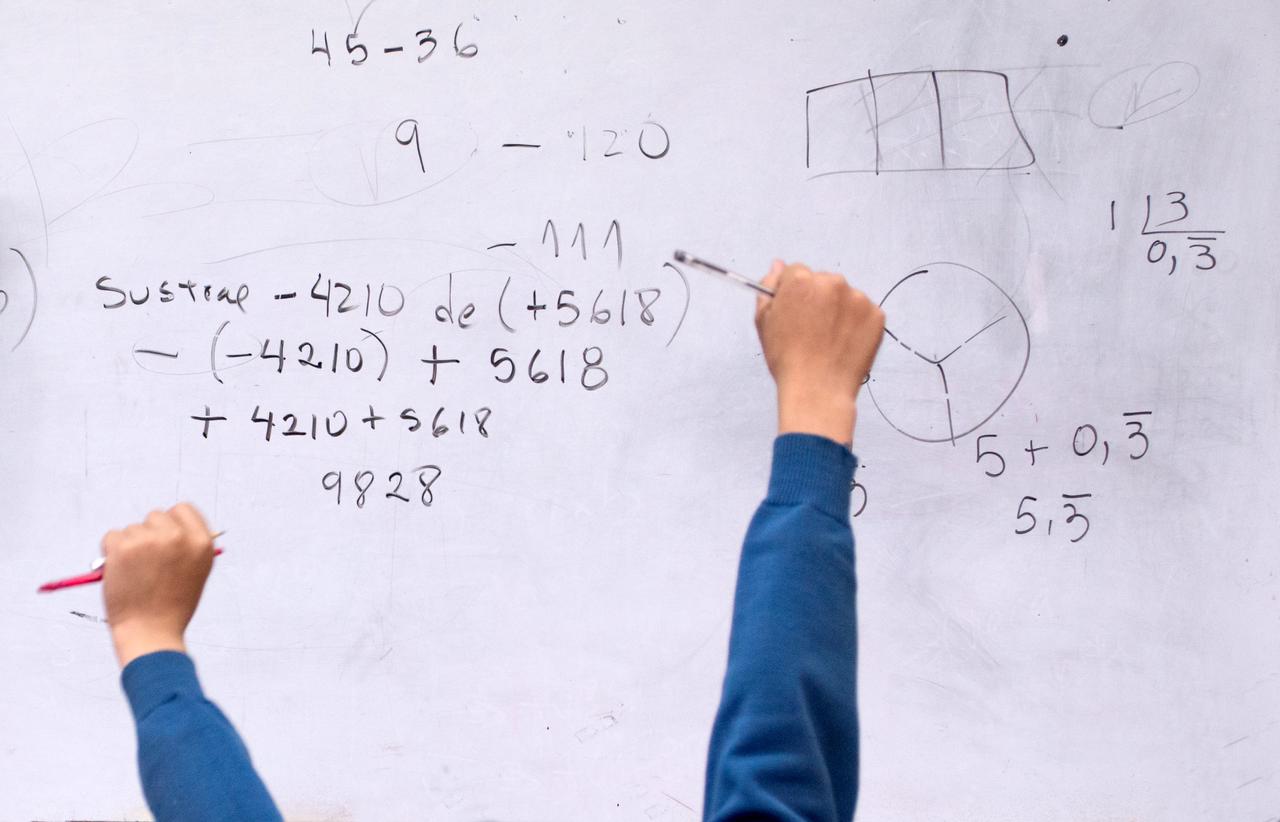 45-36
9 - 120
- 111
Sustrae -4210 de (+5618)
- (-4210) + 5618
+ 4210 + 5618
9828
1 |3
0,3̅
5 + 0,3̅
5,3̅